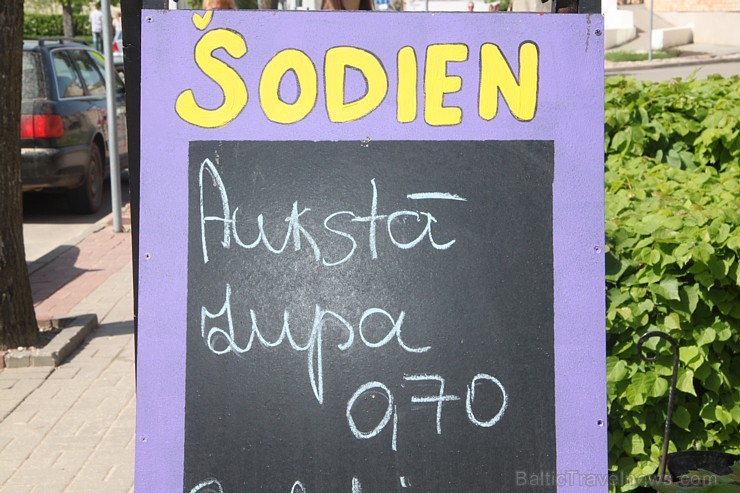 ŠODIEN
Aukstā
zupa
0,70
BalticTravelnews.com